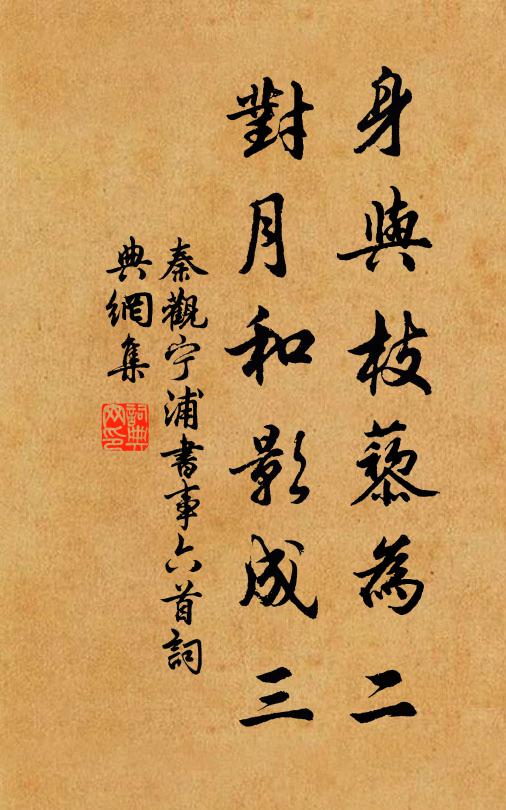 身與枝藜為二
對月和影成三
秦觀宁浦書事六首詞
典網集
詞典
网印